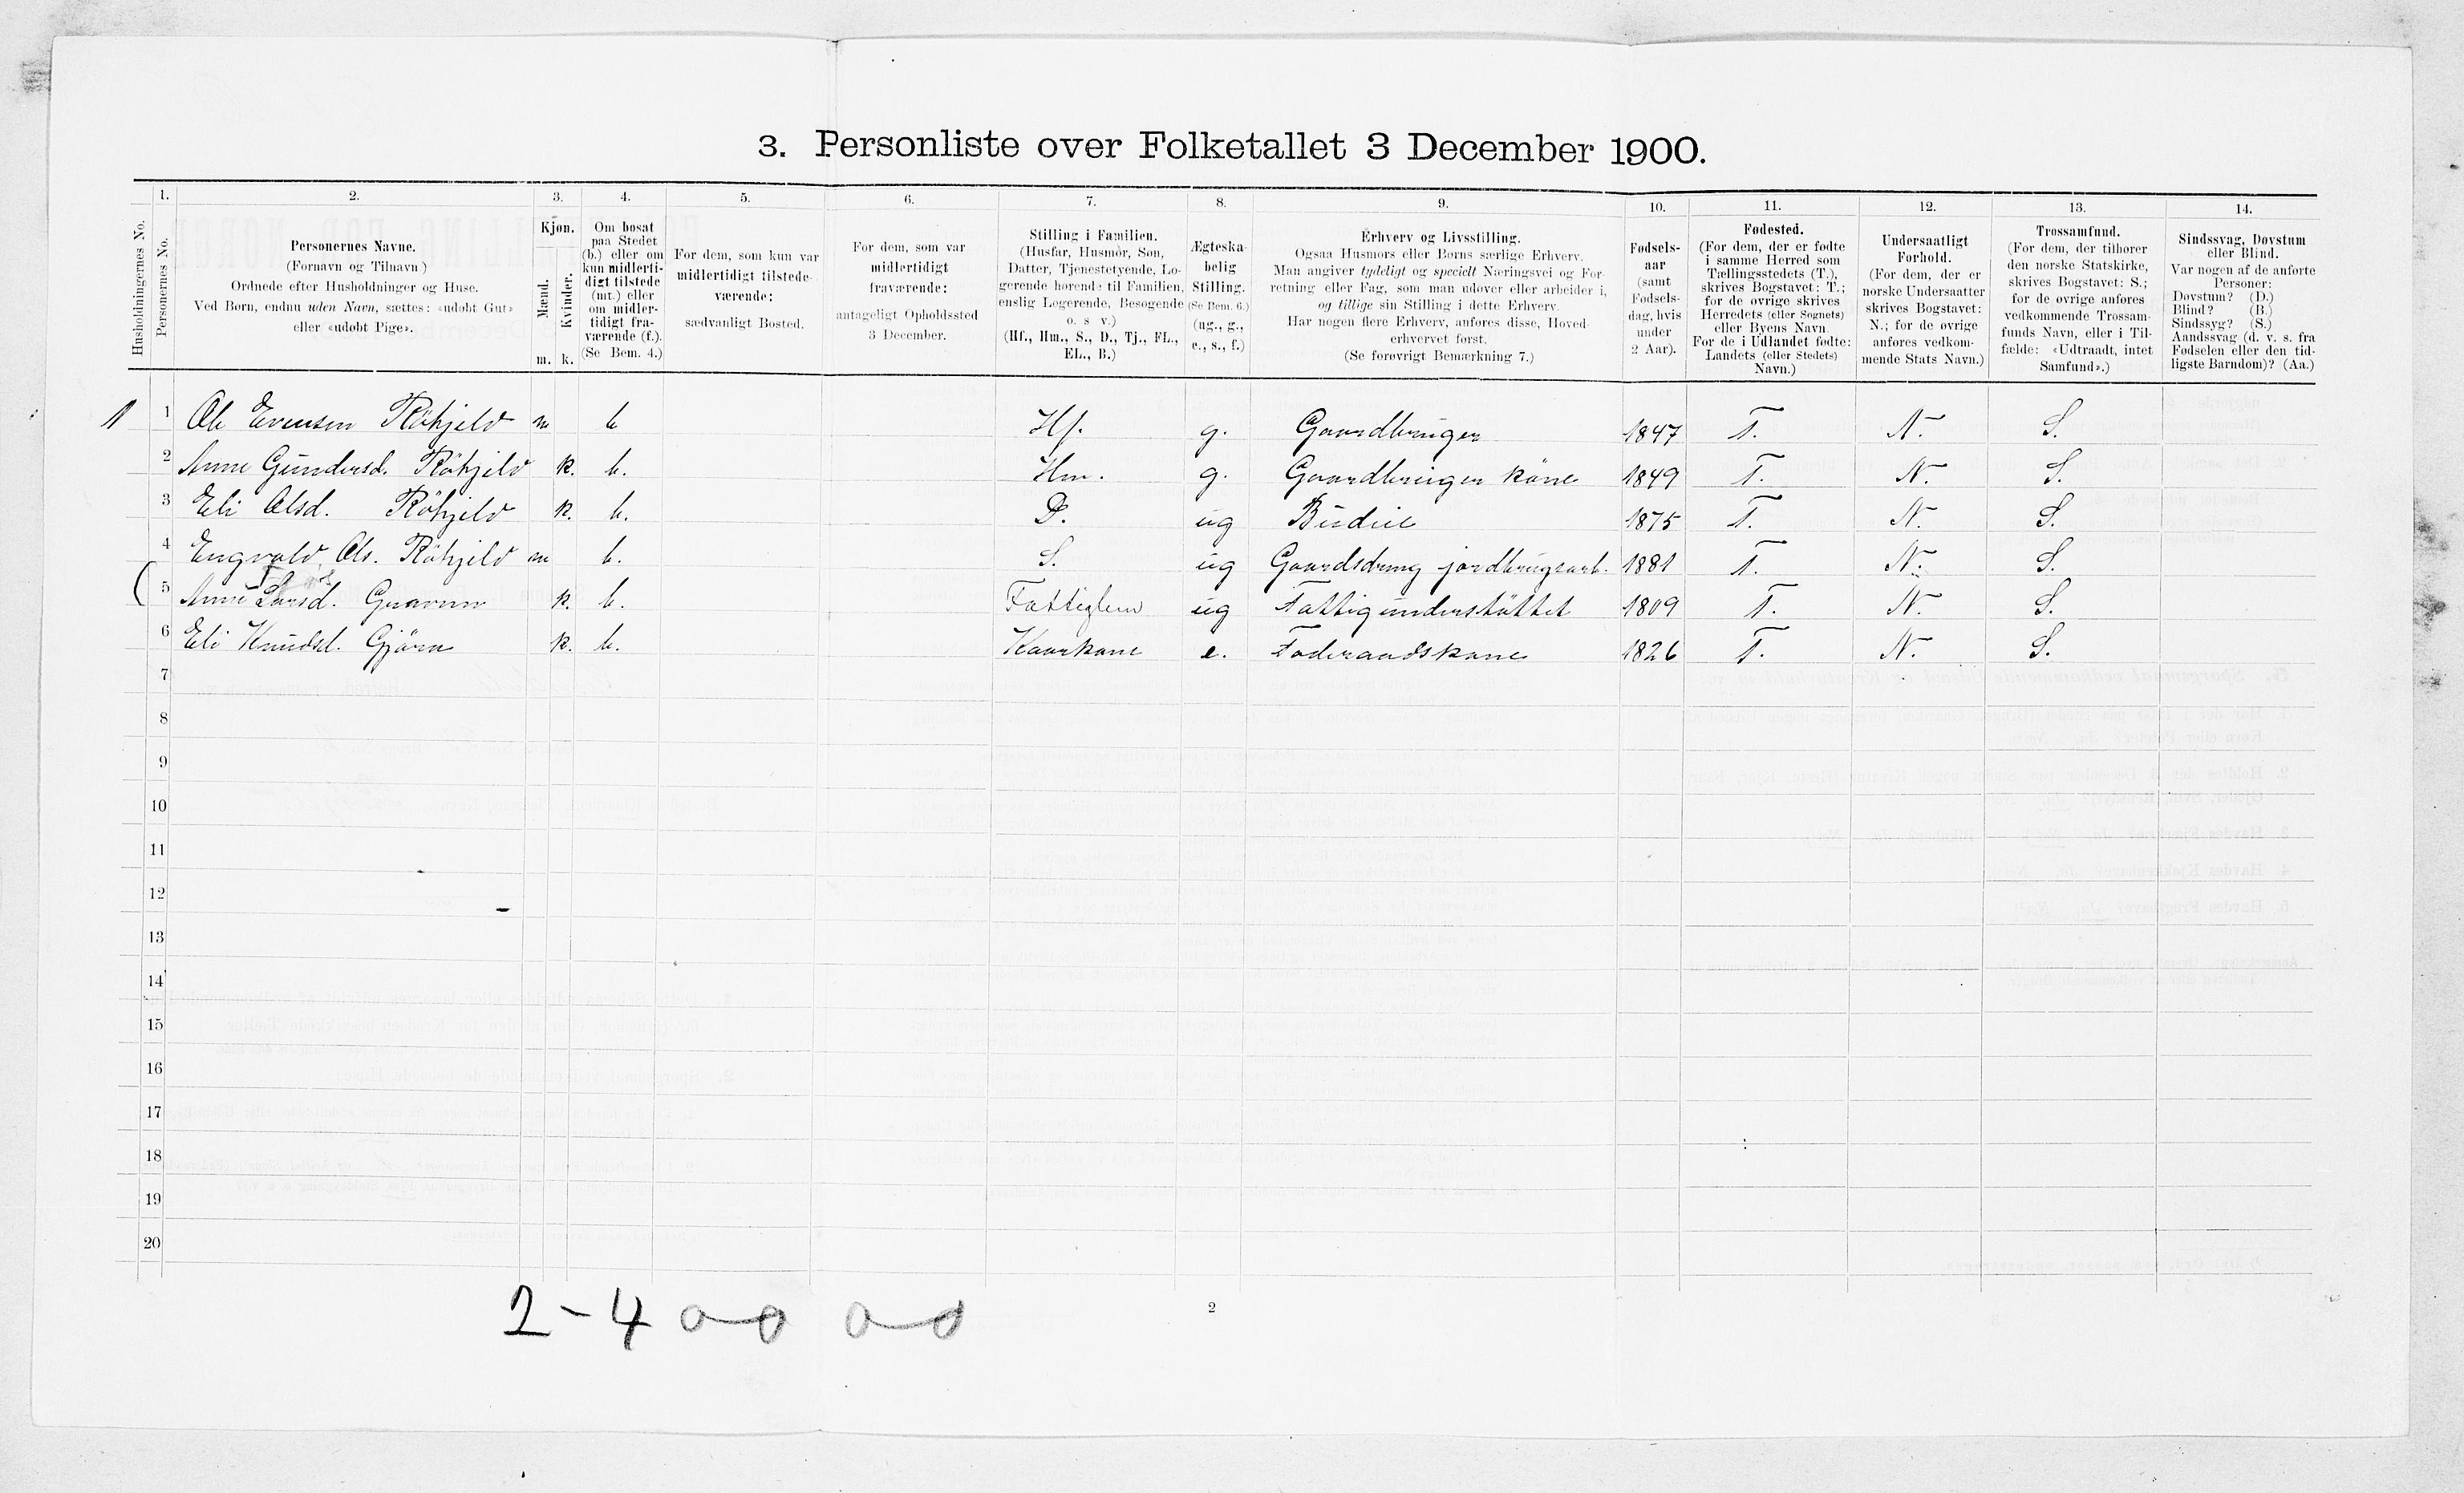 3. Personliste over Folketallet 3 December 1900.
1. 2. 3. 4. 5. 6. 7. 8. 9. 10. 11. 12. 13. 14.
Husholdningernes No.
Personernes No.
Personernes Navne.
(Fornavn og Tilnavn)
Ordnede efter Husholdninger og Huse.
Ved Børn, endnu uden Navn, sættes: «udøbt Gut»
eller «udøbt Pige».
Kjøn.
Mænd.
Kvinder.
m. k.
Om bosat
paa Stedet
(b.) eller om
kun midlerti-
digt tilstede
(mt.) eller
om midler-
tidigt fra-
værende (f.).
(Se Bem. 4.)
For dem, som kun var
midlertidigt tilstede-
værende:
sædvanligt Bosted.
For dem, som var
midlertidigt
fraværende:
antageligt Opholdssted
3 December.
Stilling i Familien.
(Husfar, Husmor, Søn,
Datter, Tjenestetyende, Lo-
gerende hørende til Familien,
enslig Logerende, Besøgende
o. s v.)
(Hf., Hm., S., D., Tj., FL.,
EL., B.)
Ægteska-
belig
Stilling.
(Se Bem. 6.)
(ug., g.,
e., s., f.)
Erhverv og Livsstilling.
Ogsaa Husmors eller Børns særlige Erhverv.
Man angiver tydeligt og specielt Næringsvei og For-
retning eller Fag, som man udøver eller arbeider i,
og tillige sin Stilling i dette Erhverv.
Har nogen flere Erhverv, anføres disse, Hoved-
erhvervet først.
(Se forøvrigt Bemærkning 7.)
Fødsels-
aar
(samt
Fødsels-
dag, hvis
under
2 Aar).
Fødested.
(For dem, der er fødte
i samme Herred som
Tællingsstedets (T.),
skrives Bogstavet: T.;
for de øvrige skrives
Herredets (eller Sognets)
eller Byens Navn.
For de i Udlandet fødte:
Landets (eller Stedets)
Navn.)
Undersaatligt
Forhold.
(For dem, der er
norske Undersaatter
skrives Bogstavet:
N.; for de øvrige
anføres vedkom-
mende Stats Navn.)
Trossamfund.
(For dem, der tilhører
den norske Statskirke,
skrives Bogstavet: S.;
for de øvrige anføres
vedkommende Trossam-
funds Navn, eller i Til-
fælde: «Udtraadt, intet
Samfund».)
Sindssvag, Døvstum
eller Blind.
Var nogen af de anførte
Personer:
Døvstum? (D.)
Blind? (B.)
Sindssyg? (S.)
Aandssvag (d. v. s. fra
Fødselen eller den tid-
ligste Barndom)? (Aa.)
1 1 Ole Evensen Röhjeld m b Hf. g. Gaardbruger 1847 T. N. S.
2 Anne Gundersd. Röhjeld k. b. Hm. g. Gaardbruger kone 1849 T. N. S.
3 Eli Olsd. Röhjeld k. b. D. ug Budeie 1875 T. N. S.
4 Engvald Ols. Röhjeld m b. S. ug Gaardsdreng jordbrugsarb. 1881 T. N. S.
( 5 Anne Larsd. k. b. Fattiglem ug Fattigunderstöttet 1809 T. N. S.
6 Eli Knudsd. Gjörn k. b. Kaarkone e. Foderaadskone 1826 T. N. S.
7
8
9
10
11
12
13
14
15
16
17
18
19
20
2-4 0-0 0-0
2